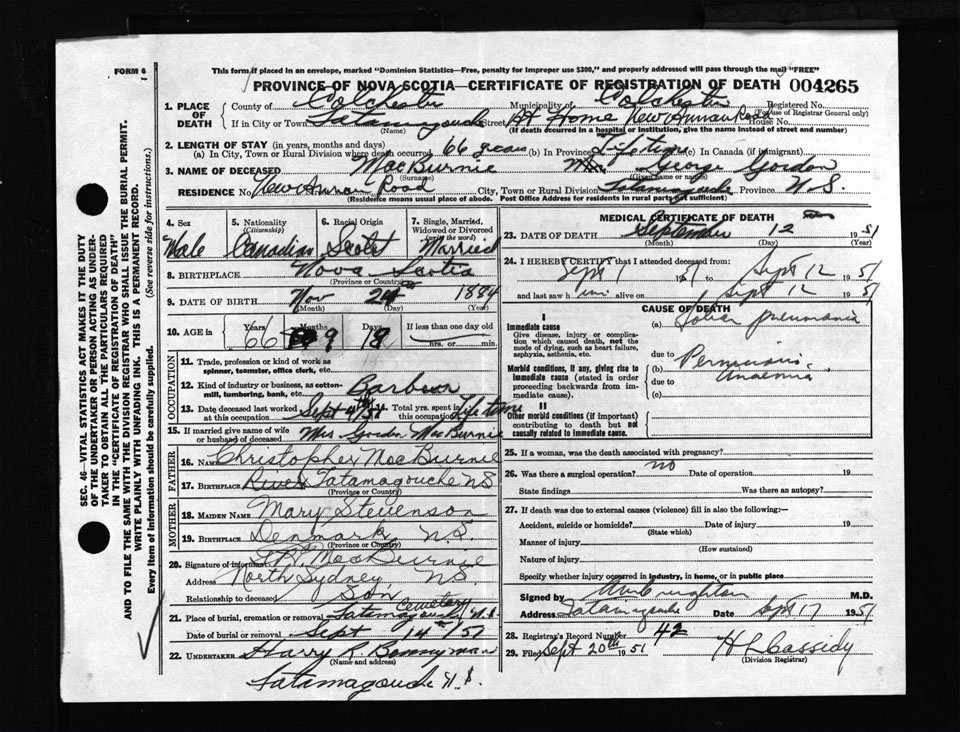 FORM 6
This form if placed in an envelope, marked "Dominion Statistics—Free, penalty for improper use $300," and properly addressed will pass through the mail "FREE"
PROVINCE OF NOVA SCOTIA—CERTIFICATE OF REGISTRATION OF DEATH 004265
1. PLACE OF DEATH County of Colchester Municipality of Colchester Registered No. (For use of Registrar General only)
If in City or Town Tatamagouche Street At Home New Annan Road House No.
(Name) (If death occurred in a hospital or institution, give the name instead of street and number)
2. LENGTH OF STAY (in years, months and days)
(a) In City, Town or Rural Division where death occurred 66 years (b) In Province Lifetime (c) In Canada (if immigrant)
3. NAME OF DECEASED MacBurnie George Gordon
(Surname) (Given name or names)
RESIDENCE No. New Annan Road City, Town or Rural Division Tatamagouche Province N.S.
(Residence means usual place of abode. Post Office Address for residents in rural parts not sufficient)
4. Sex Male
5. Nationality (Citizenship) Canadian
6. Racial Origin Scotch
7. Single, Married, Widowed or Divorced (write the word) Married
8. BIRTHPLACE Nova Scotia
(Province or Country)
9. DATE OF BIRTH Nov 24 1884
(Month) (Day) (Year)
10. AGE in Years 66 Months 9 Days 18 If less than one day old hrs. or min.
OCCUPATION
11. Trade, profession or kind of work as spinner, teamster, office clerk, etc.
12. Kind of industry or business, as cotton-mill, lumbering, bank, etc. Barber
13. Date deceased last worked at this occupation Sept 4/51 14. Total yrs. spent in this occupation Lifetime
15. If married give name of wife or husband of deceased Mrs. Gordon MacBurnie
FATHER
16. NAME Christopher MacBurnie
17. BIRTHPLACE River Tatamagouche NS
(Province or Country)
MOTHER
18. MAIDEN NAME Mary Stevenson
19. BIRTHPLACE Denmark N.S.
(Province or Country)
20. Signature of informant MacBurnie
Address North Sydney N.S.
Relationship to deceased Son
21. Place of burial, cremation or removal Tatamagouche Cemetery N.S.
Date of burial or removal Sept 14/51
22. UNDERTAKER Harry R. Bonnyman
(Name and address)
Tatamagouche N.S.
MEDICAL CERTIFICATE OF DEATH
23. DATE OF DEATH September 12 1951
(Month) (Day) (Year)
24. I HEREBY CERTIFY that I attended deceased from:
Sept 1 1951 to Sept 12 1951
and last saw him alive on Sept 12 1951
CAUSE OF DEATH
I
Immediate cause
Give disease, injury or complication which caused death, not the mode of dying, such as heart failure, asphyxia, asthenia, etc.
(a) Lobar pneumonia
due to
Morbid conditions, if any, giving rise to immediate cause (stated in order proceeding backwards from immediate cause).
(b) Pernicious Anaemia
due to
(c)
II
Other morbid conditions (if important) contributing to death but not causally related to immediate cause.
25. If a woman, was the death associated with pregnancy?
26. Was there a surgical operation? no Date of operation 19
State findings Was there an autopsy?
27. If death was due to external causes (violence) fill in also the following:—
Accident, suicide or homicide? Date of injury 19
(State which)
Manner of injury
(How sustained)
Nature of injury
Specify whether injury occurred in industry, in home, or in public place
Signed by M.D.
Address Tatamagouche Date Sept 17 1951
28. Registrar's Record Number 42
29. Filed Sept 20th 1951 H L Cassidy
(Division Registrar)
SEC. 46—VITAL STATISTICS ACT MAKES IT THE DUTY
OF THE UNDERTAKER OR PERSON ACTING AS UNDER-
TAKER TO OBTAIN ALL THE PARTICULARS REQUIRED
IN THE "CERTIFICATE OF REGISTRATION OF DEATH"
AND TO FILE THE SAME WITH THE DIVISION REGISTRAR WHO SHALL ISSUE THE BURIAL PERMIT.
WRITE PLAINLY WITH UNFADING INK. THIS IS A PERMANENT RECORD.
Every item of information should be carefully supplied. (See reverse side for instructions.)